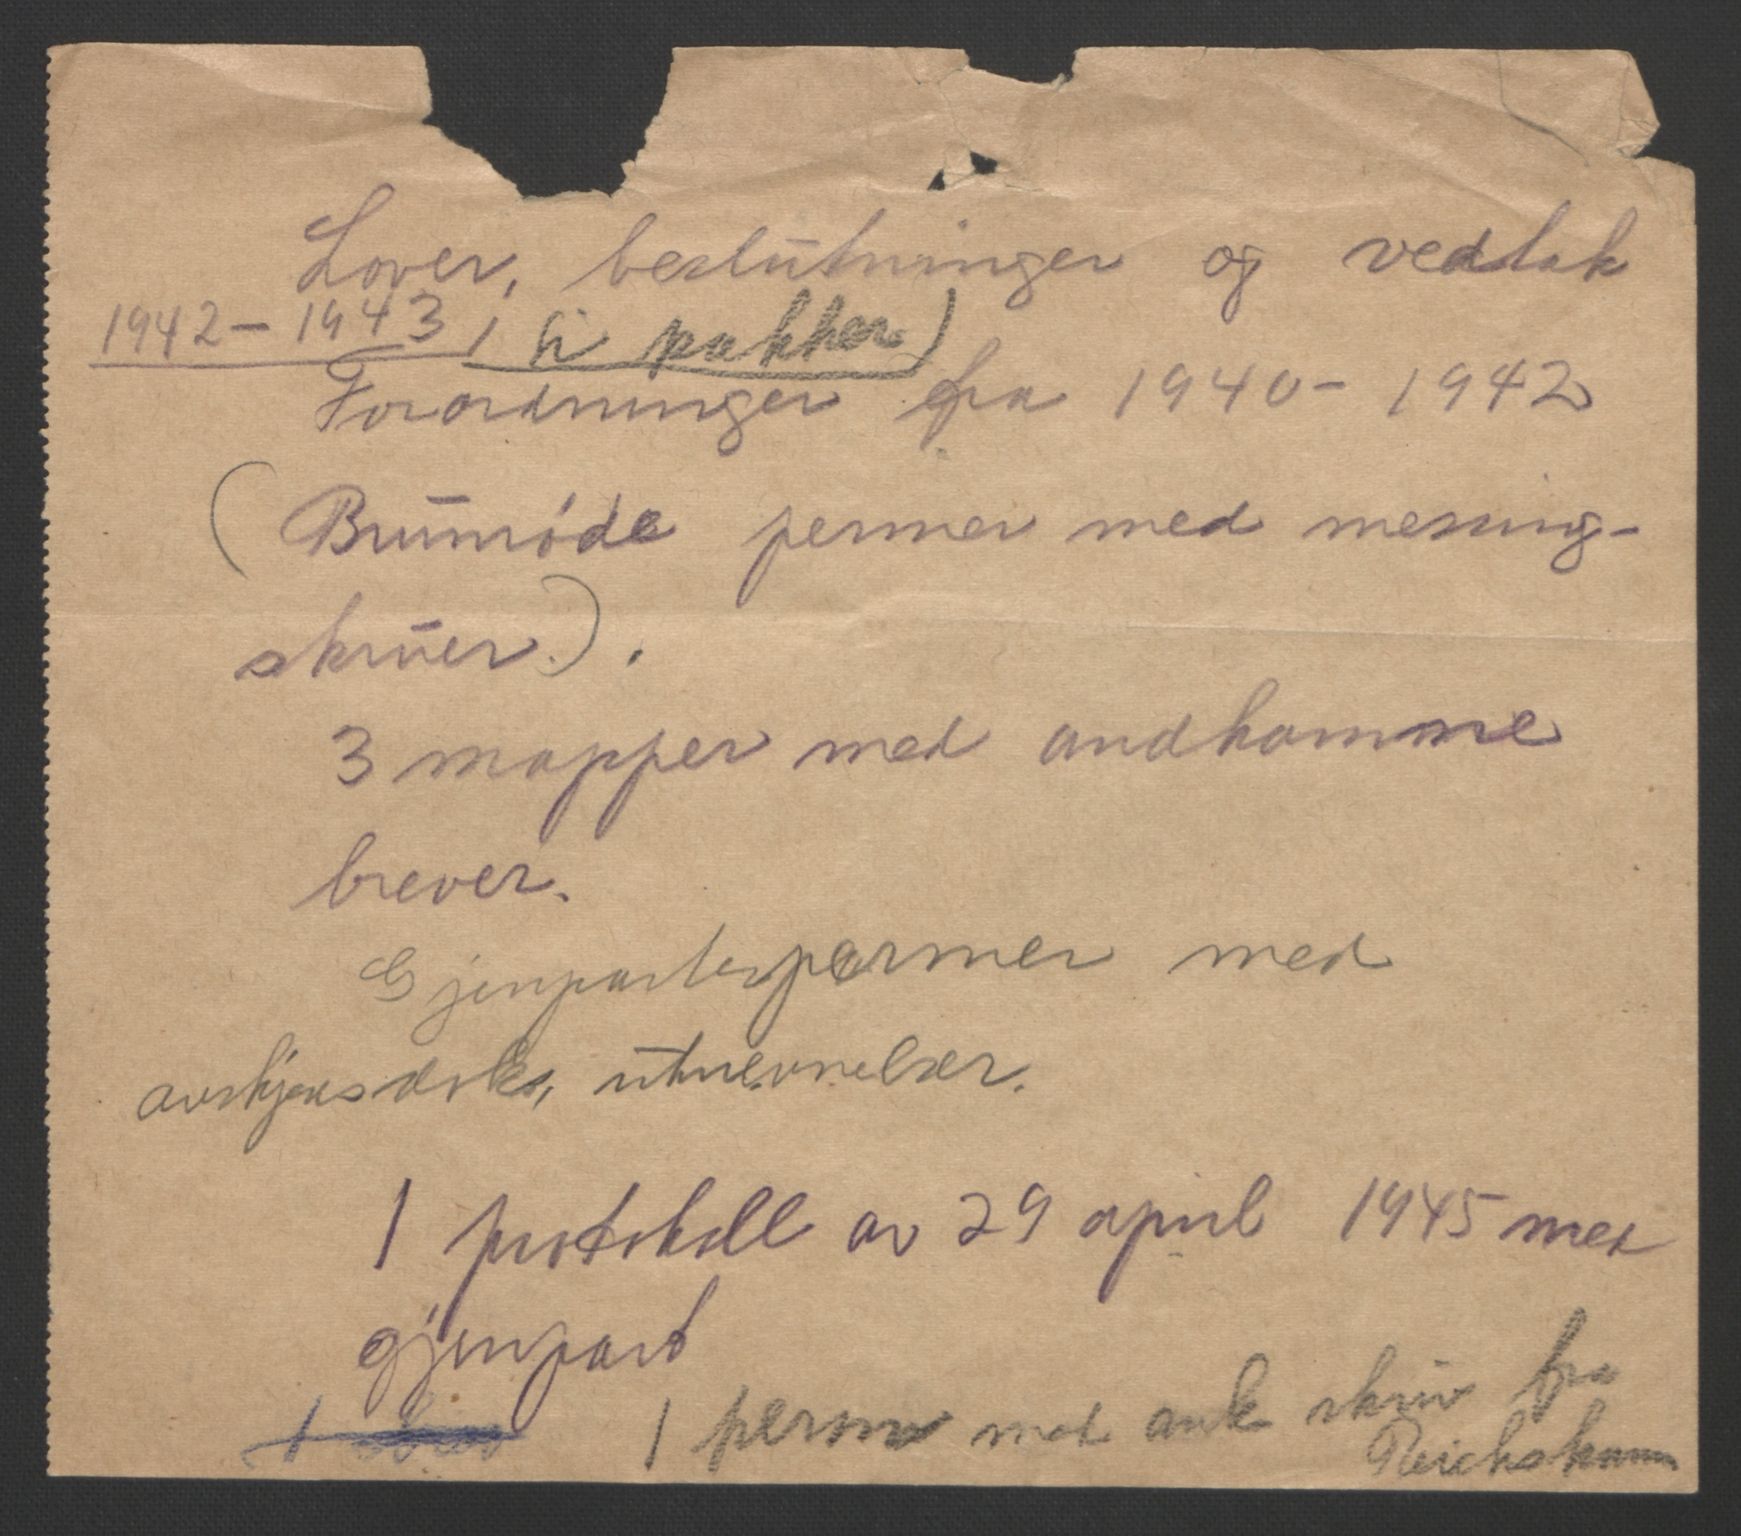 Lover, beslutninger og vedtak
1942 - 1943, (i pakker)
Forordninger fra 1940 - 1942
(Brunrøde permer med messing-
skruer).
3 mapper med andkomne
brever.
Gjenpartspermer med
avskjeds utnevnelser.
1 protokoll av 29 april 1945 med
gjenpart
1 1 perm med ank skriv fra
Reichskomm